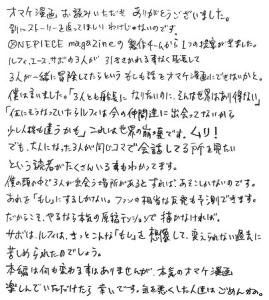 オマケ漫画お読みいただき ありがとうございました。
別にストーリーを追ってほしいわけじゃないのです。
ONEPIECE magazineの製作チームから1つの提案がきました。
ルフィ、エース、サボの3人が 引きさかれる事なく成長して
3人が一緒に冒険してたらという子ども話をオマケ漫画にできないかと。
僕は言いました。「3人とも船長になりたいのに、そんな世界はあり得ない」
「仮にそうなっていたらルフィは今の仲間達に出会ってないから
少し人格も違うかも」これは世界の崩壊です。ムリ!
でも、大人になった3人が同じコマで会話してる所を見たい
という読者がたくさんいる事もわかってます。
僕の頭の中で3人が出会う場所があるとすれば あそこしかないのです。
あれを「もし」にするしかない。ファンの相当な反発も予測できます。
だからこそ、やるなら本気の原稿テンションで 描かなければ。
サボは、ルフィは、きっとこんな「もし」を想像して、変えられない過去に
苦しめられたのでしょう。
本編は何も変わる事はありませんが、本気のオマケ漫画
楽しんでいただけたら 幸いです。気を悪くした人達はごめんなさい。